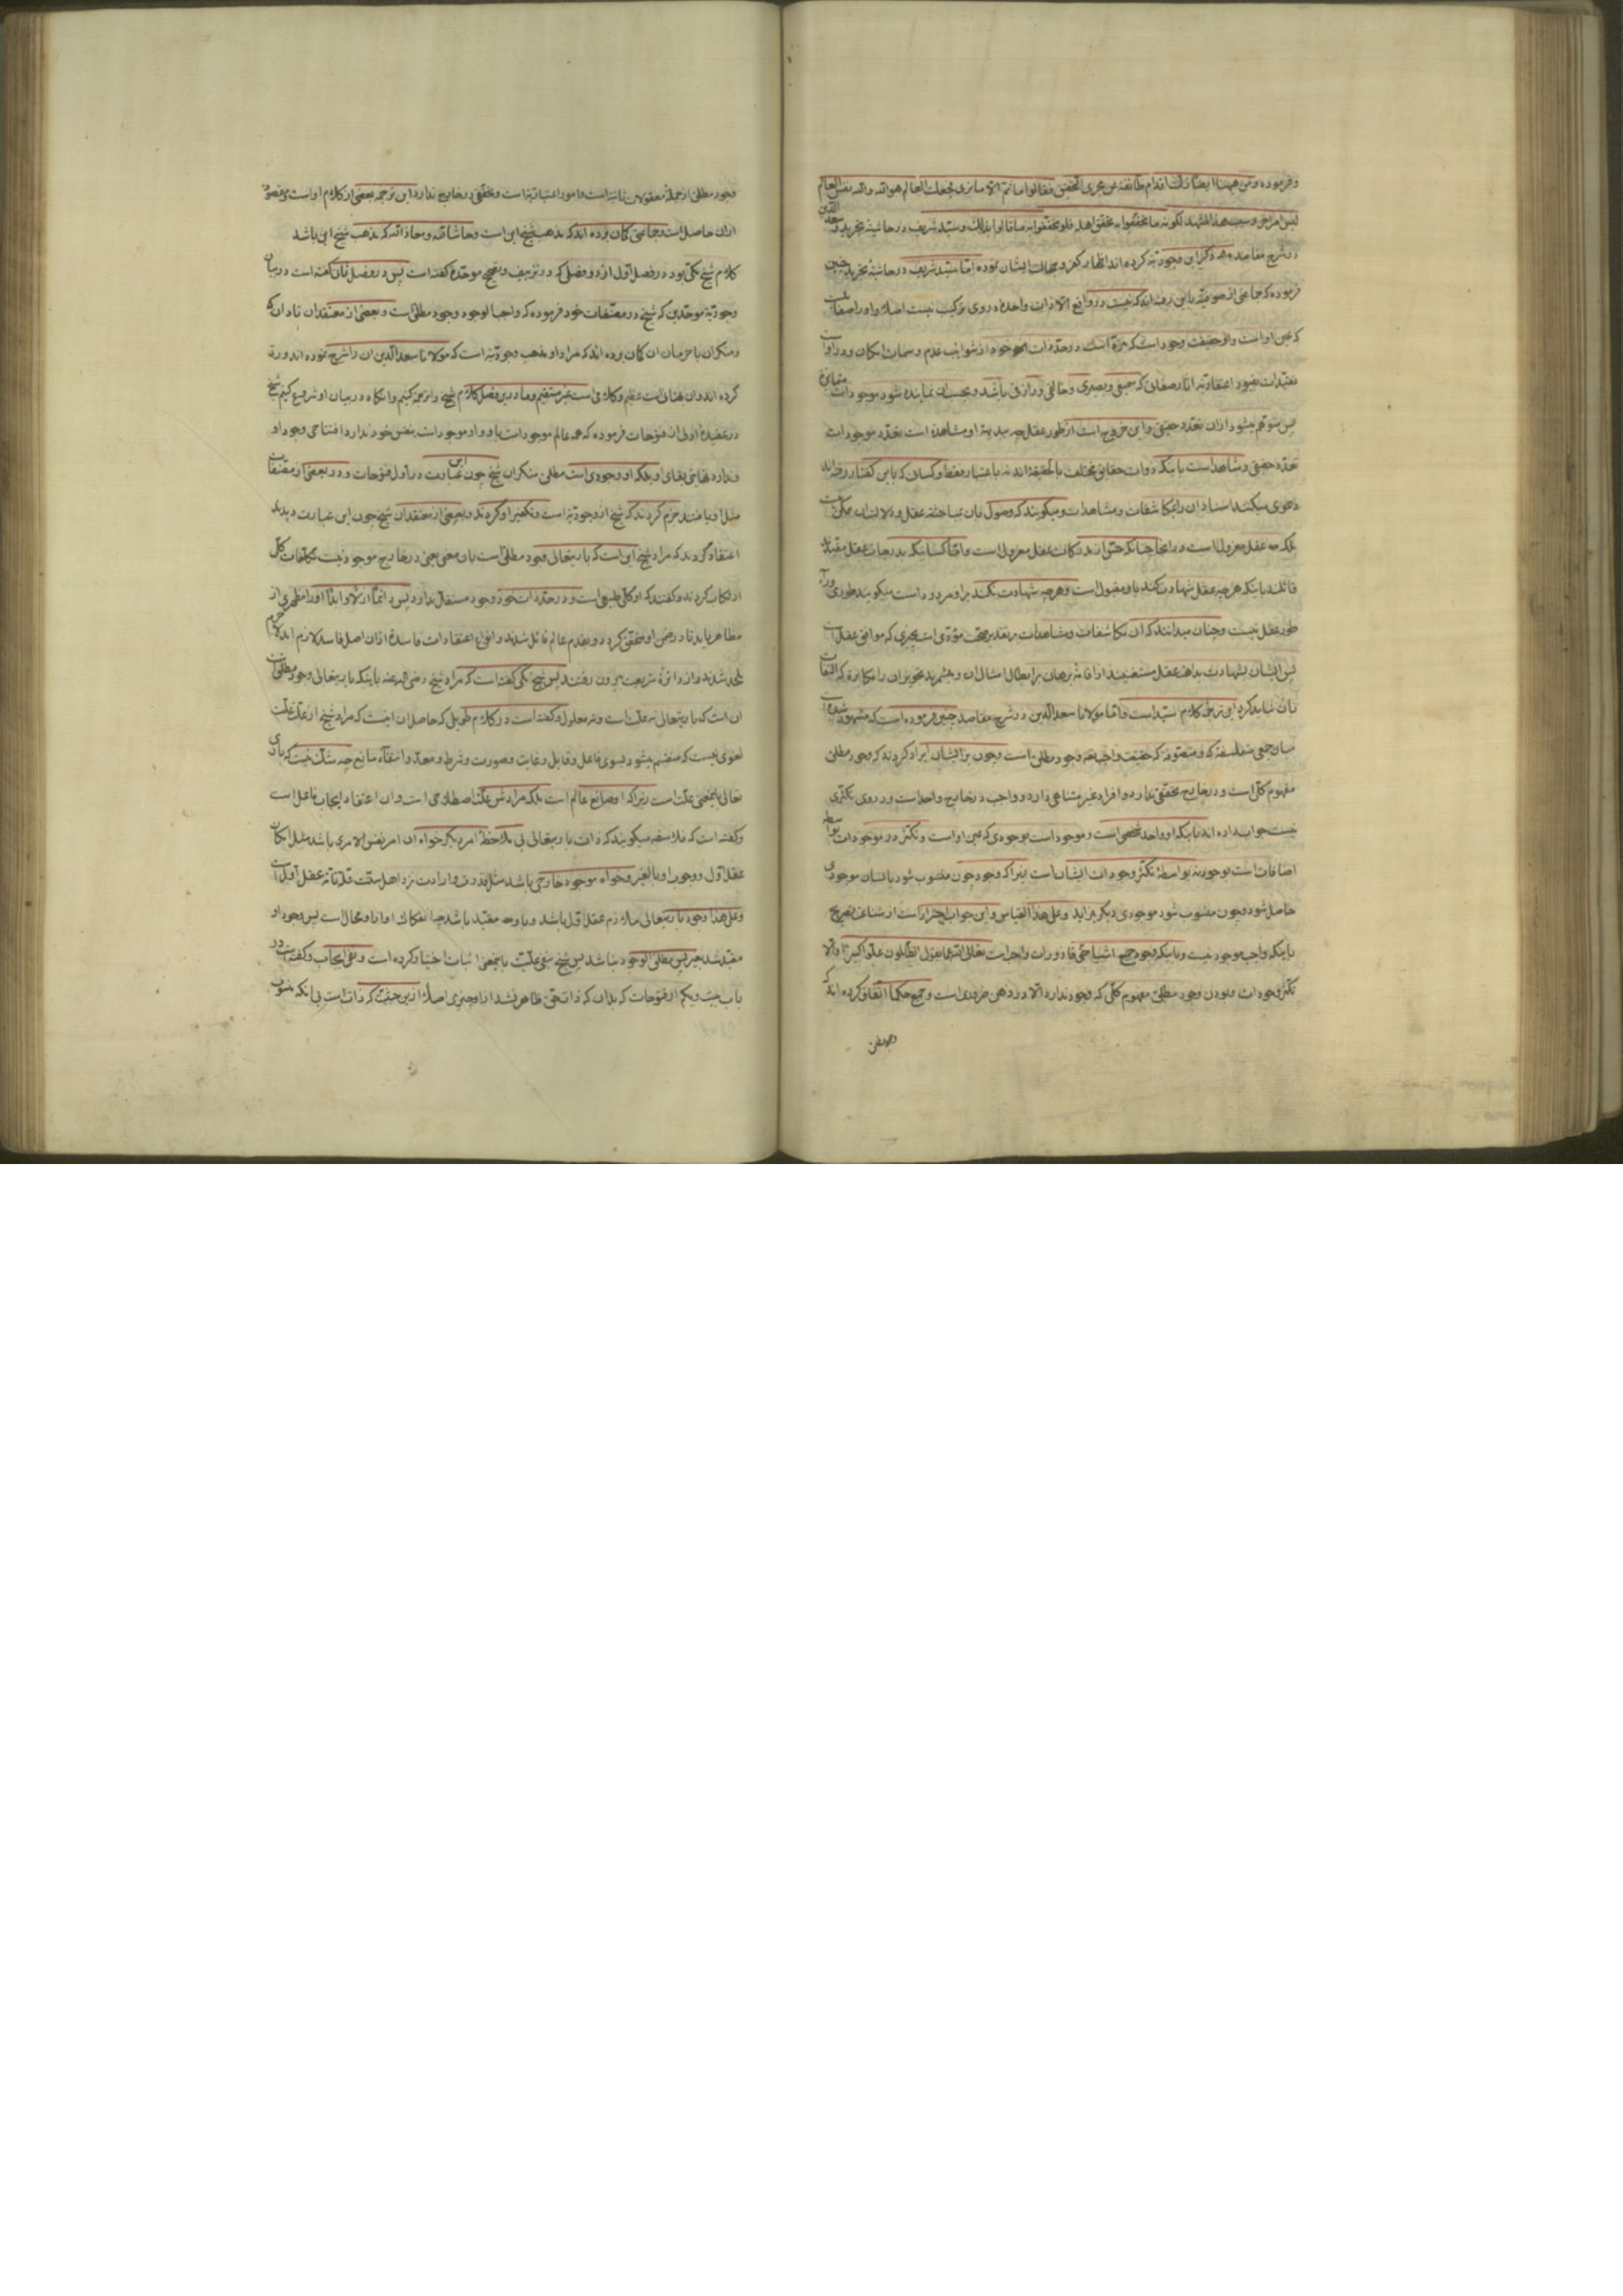 وفرموده ومن ههنا ايضا زلت اقدام طائفة عن مجرى التحقيق فقالوا ما ثم الا ما نرى فجعلت العالم هو الله والله نفس العالم
ليس امر اخر وسبب هذا المشهد لكونه ما تحققوا به تحقق اهله فلو تحققوا به ما قالوا بذلك وسيد شريف در حاشیه تجرید وسعد الدین
در شرح مقاصد ذکر این وجودیه کرده اند اظهار کفر و جهالت ایشان نموده اما سید شریف در حاشیه تجرید چنین
فرموده که جماعتی از صوفیه باین رفته اند که نیست در واقع الا ذات واحده در وی ترکیب نیست اصلا و او را صفات
که عین اوست و او حقیقت وجود است که منزه است در حد ذات خود از شوایب عدم و سمات امکان و در او است
تقیدات بقیود اعتباریه انا رصفاتی که سمیعی و بصیری و خالقی و رازقی باشد و بحسب ان نماینده شود موجودات متمایزه
پس متوهم میشود از ان تعدد حقیقی و این خروج است از طور عقل چه بدیهة او مشاهده است بتعدد موجودات
تعدد حقیقی و شاهد است باینکه ذوات حقایق مختلف بالحقیقة اند نه باعتبار فقط و کسان که باین گفتار رفته اند
دعوی میکنند اسناد ان را بمکاشفات و مشاهدات و میگویند که وصول بان بمباحثه عقل و دلالت ان ممکن نیست
بلکه عقل معزول است در انجا چنانکه حس از مدرکات عقل معزول است و اما کسانیکه بدرجات عقل مقیدند
قائلند باینکه هر چه عقل شهادت کند باو مقبول است و هر چه شهادت نکند براو مردود است میگویند طوری وراء
طور عقل نیست و چنان میدانند که ان مکاشفات و مشاهدات بر تقدیر صحت مؤدی است بچیزی که موافق عقل است
پس ایشان بشهادت بداهت عقل مستغنیند از اقامه برهان بر ابطال امثال ان و میشمرند تجویز ان را مکابره که التفات
بان نباید کرد این ترجمه کلام سید است و اما مولانا سعد الدین در شرح مقاصد چنین فرموده است که مشهور شده است
میان جمعی متفلسفه که و متصوفه که حقیقت واجب تعه وجود مطلق است و چون بر ایشان ایراد کردند که وجود مطلق
مفهوم کلی است و در خارج تحققی ندارد و افراد غیر متناهی دارد و واجب در خارج واحد است و در وی تکثری
نیست جواب داده اند باینکه او واحد شخصی است و موجود است بوجودی که عین اوست و تکثر در موجودات بواسطه
اضافات است بوجود نه بواسطه تکثر وجودات ایشان است زیرا که وجود چون منسوب شود بانسان موجودی
حاصل شود و چون منسوب شود موجودی دیگر بزاید و علی هذا القیاس و این جواب احتراز است از شناعت تصریح
باینکه واجب موجود نیست و باینکه وجود جمیع اشیا حتی قاذورات واجب است تعالی الله عما یقول الظالمون علوا کبیرا والا
تکثر وجودات و بودن وجود مطلق مفهوم کلی که وجود ندارد الا در ذهن ضروری است و جمیع حکما اتفاق کرده اند که
وجود مطلق
وجود مطلق از جمله معقولات ثانیه است و امور اعتباریه است و تحققی در خارج ندارد این ترجمه بعضی از کلام اوست و مقصود
ازان حاصل است و جماعتی گمان برده اند که مذهب شیخ این است و حاشا لله و معاذ الله که مذهب شیخ این باشد
کلام شیخ مکی بود در فصل اول از دو فصلی که در تزییف وجودیه موحده گفته است پس در فصل ثانی گفته است در بیان
وجودیه موحدین که شیخ در مصنفات خود فرموده که واجب الوجود وجود مطلق است و بعضی از معتقدان نادان که
و منکران با حرمان ان گمان برده اند که مراد او مذهب وجودیه است که مولانا سعد الدین ان را شرح نموده اند و رد
کرده اند و ان بهتانی است عظیم و کلامی است غیر مستقیم و ما در این فصل کلام شیخ را ترجمه کنیم و انگاه در بیان او شروع کنیم شیخ
در عقیده اولی از فتوحات فرموده که همه عالم موجود است باو و او موجود است بنفس خود ندارد افتتاحی وجود او
و ندارد نهایتی بقای او بلکه او وجودی است مطلق منکران شیخ چون این عبارت در اول فتوحات و در بعضی از مصنفات
مثل او یافتند جزم کردند که شیخ از وجودیه است و تکفیر او کردند و بعضی از معتقدان شیخ چون این عبارت دیدند
اعتقاد کردند که مراد شیخ این است که باریتعالی وجود مطلق است بان معنی یعنی در خارج موجود نیست تکلفات کل
ارتکاب کردند و گفتند که او کلی طبیعی است و در حد ذات خود وجود مستقل ندارد پس دائما ازلا و ابدا او را مظهری از
مظاهر باید تا در ضمن او متحقق گردد و بقدم عالم قائل شدند و انواع اعتقادات فاسده ازان اصل فاسد لازم اند لا جرم
ملحد شدند و از دائره شریعت بیرون رفتند پس شیخ مکی گفته است که مراد شیخ رضی الله عنه باینکه باریتعالی وجود مطلق است
ان است که باریتعالی نه علت است و نه معلول و گفته است در کلام طویلی که حاصل ان اینست که مراد شیخ از علت علت
لغوی نیست که منقسم میشود بسوی فاعل و قابل و غایت و صورت و شرط و معد و انتفاء مانع چه شک نیست که باری
تعالی بدین معنی علت است زیرا که او صانع عالم است بلکه مرادش علت اصطلاحی است و ان اعتقاد ایجاب فاعل است
و گفته است که فلاسفه میگویند که ذات باریتعالی بی ملاحظه امر دیگر خواه ان امر نفس الامری باشد مثل امکان
عقل اول و وجوب او بالغیر و خواه موجود خارجی باشد مثل قدرت و ارادت نزد اهل سنت علت تامه عقل اول است
و علی هذا وجود باریتعالی ملازم عقل اول باشد و باو مقید باشد چه انفکاک او از او محال است پس وجود او
مقید شد بغیر پس مطلق الوجود نباشد پس شیخ نفی علیت باینمعنی اثبات اختیار کرده است و نفی ایجاب و گفته است در
باب بیست و یکم از فتوحات که بدان که ذات حق ظاهر نشد از او چیزی اصلا از این حیثیت که ذات است بی انکه منسوب